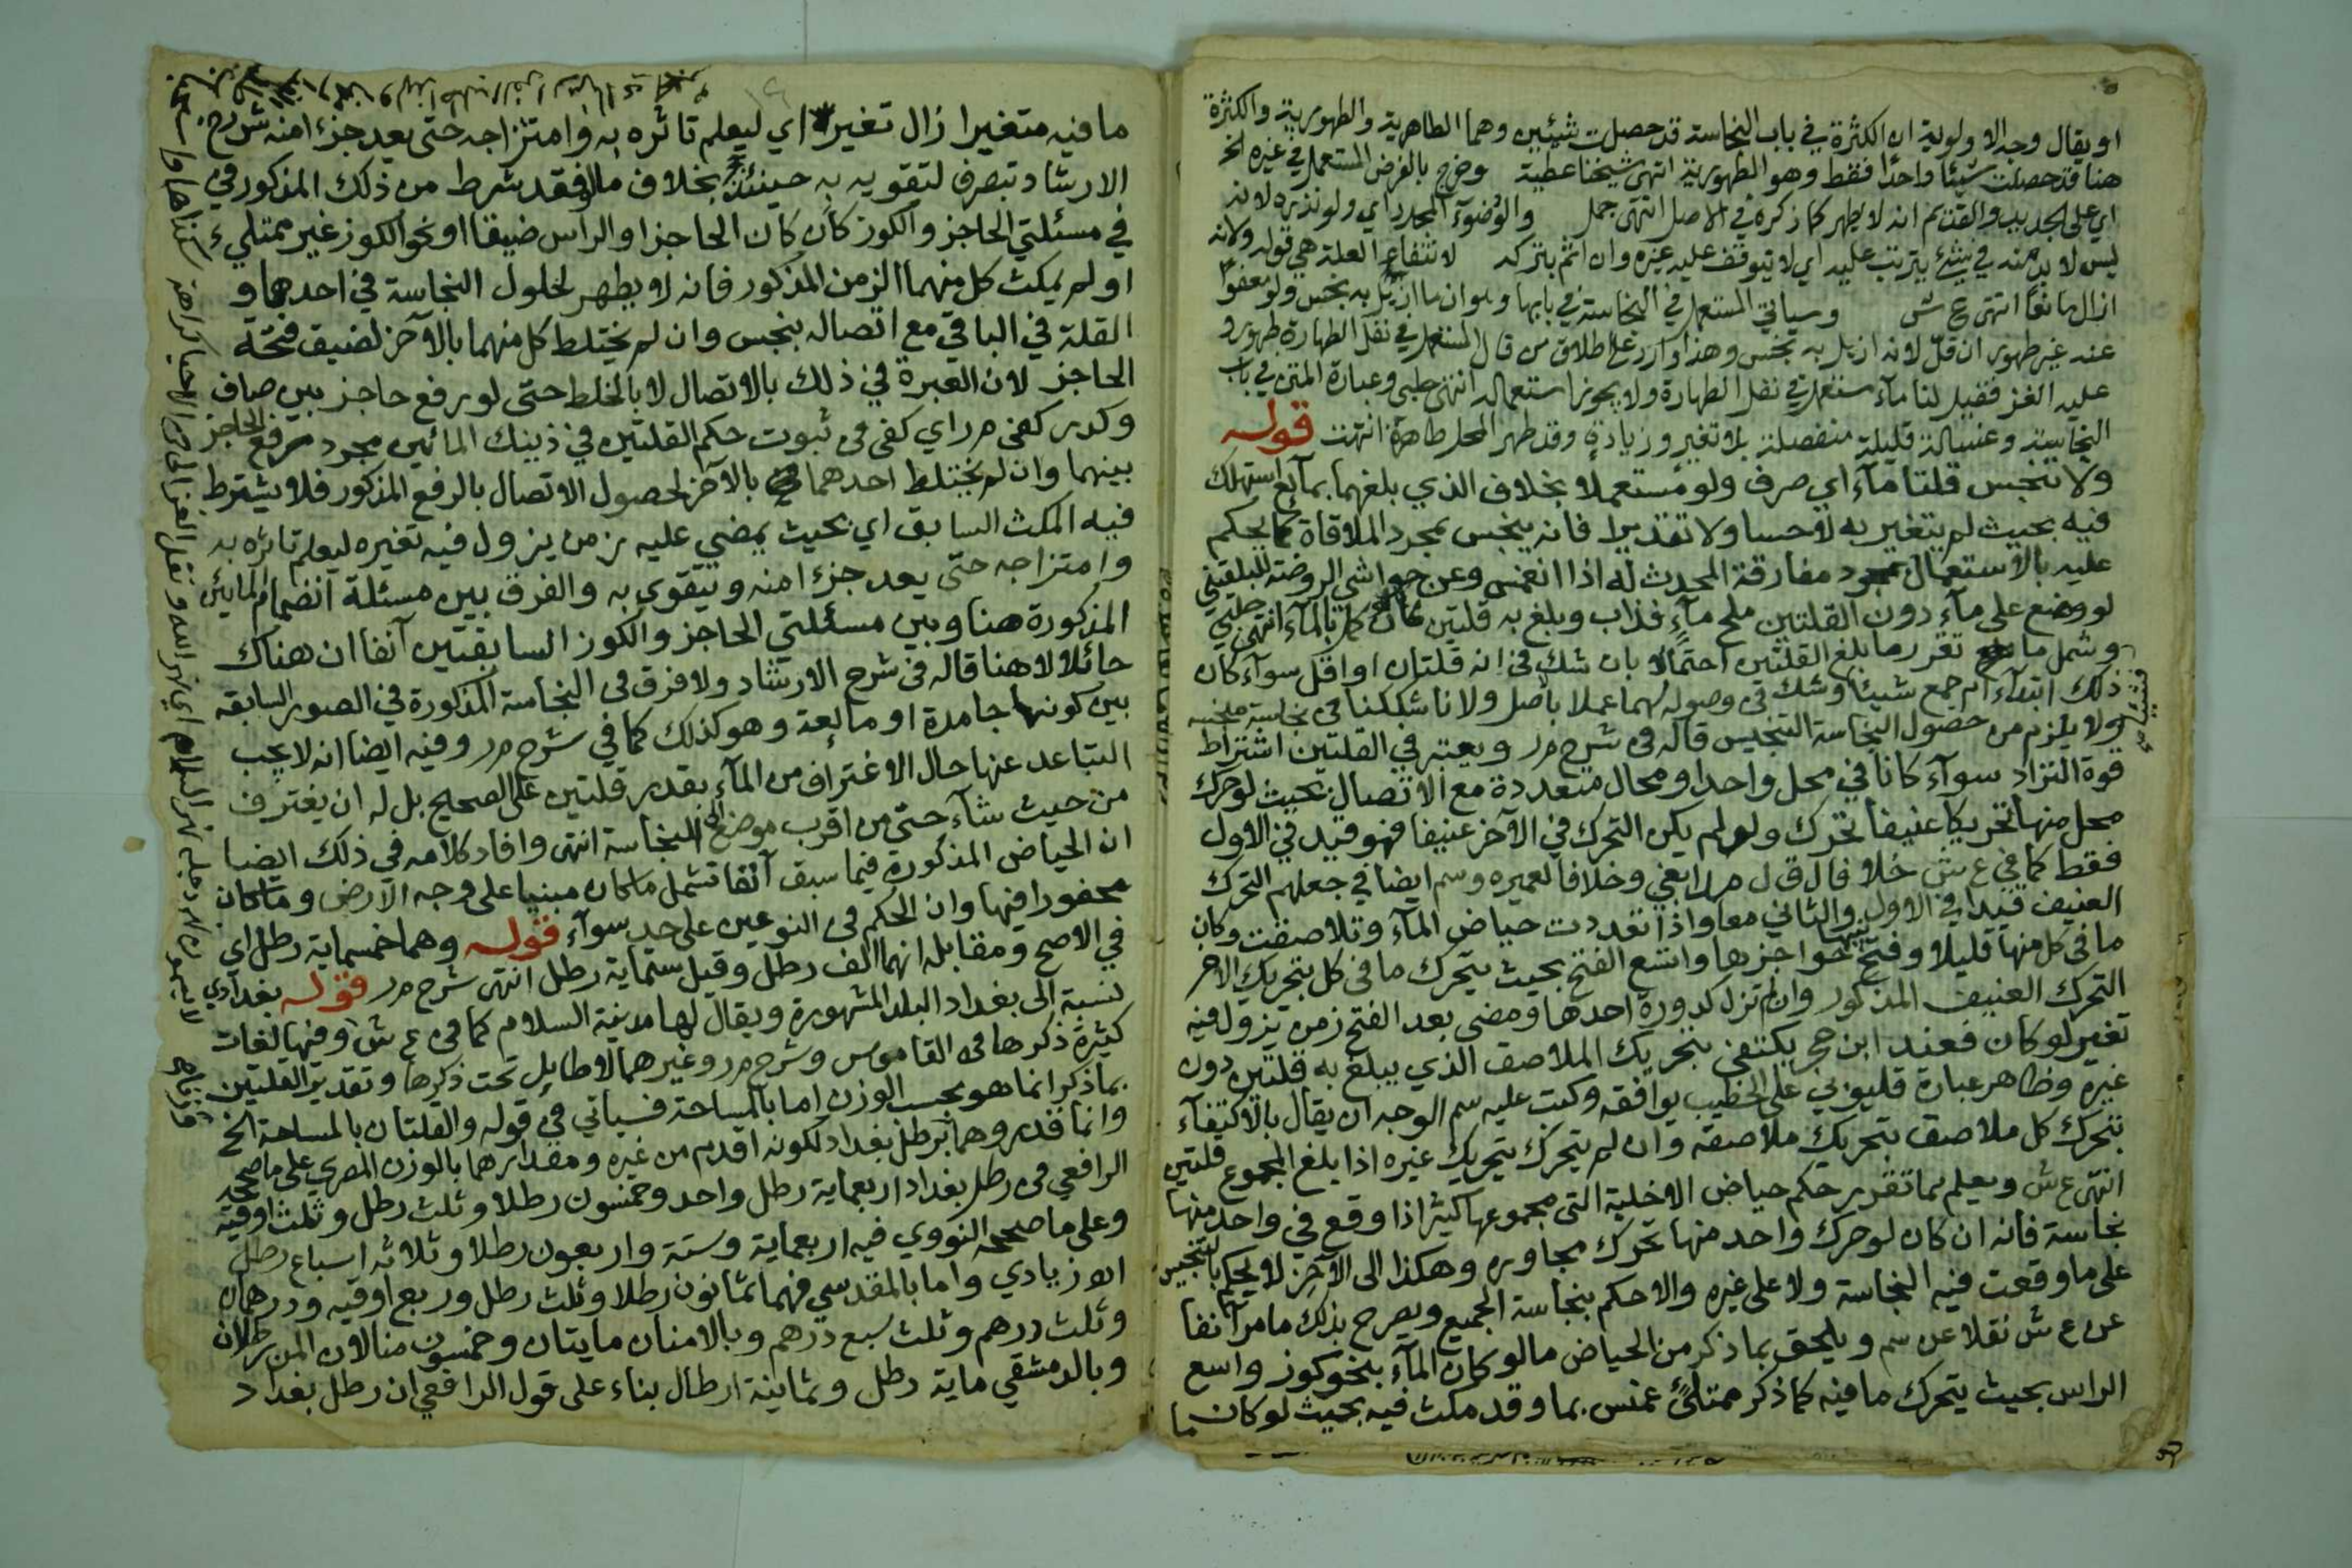 او يقال وجه الاولوية ان الكثرة في باب النجاسة قد حصلت شيئين وهما الطاهرية والطهورية والكثرة
هنا قد حصلت شيئا واحدا فقط وهو الطهورية انتهى شيخنا عطية وخرج بالفرض المستعمل في غيره الخ
اي على الجديد والقديم انه لا يطهر كما ذكره في الاصل انتهى جمل والوضوء المجدد اي ولو نذره لانه
ليس لا بد منه في شئ يترتب عليه اي لا يتوقف عليه غيره وان اثم بتركه لانتفاء العلة هي قوله ولانه
ازال مانعا انتهى ع ش وسياتي المستعمل في النجاسة في بابها وهو ان ما ازيل به نجس ولو معفوا
عنه غير طهور ان قل لانه ازيل به نجس وهذا وارد على اطلاق من قال المستعمل في نفل الطهارة طهور و
عليه الغز فقيل لنا مآء مستعمل في نفل الطهارة ولا يجوز استعماله انتهى حلبي وعبارة المتن في باب
النجاسة وغسالة قليلة منفصلة بلا تغير وزيادة وقد طهر المحل طاهرة انتهت قوله
ولا تنجس قلتا مآء اي صرف ولو مستعملا بخلاف الذي بلغهما بمآئع استهلك
فيه بحيث لم يتغير به لا حسا ولا تقديرا فانه ينجس بمجرد الملاقاة كما يحكم
عليه بالاستعمال بمجرد مفارقة المحدث له اذا انغمس وعن حواشي الروضة للبلقيني
لو وضع على مآء دون القلتين ملح مآء فذاب وبلغ به قلتين كان كما بالمآء انتهى حلبي
وشمل ما تقرر ما بلغ القلتين احتمالا بان شك في انه قلتان او اقل سوآء كان
ذلك ابتدآء ام جمع شيئا وشك في وصوله لهما عملا باصل ولانا شككنا في نجاسة منجسه
ولا يلزم من حصول النجاسة التنجيس قاله في شرح مر ويعتبر في القلتين اشتراط
قوة التراد سوآء كانا في محل واحد او محال متعددة مع الاتصال بحيث لو حرك
محل منها تحريكا عنيفا تحرك ولو لم يكن التحرك في الآخر عنيفا فهو قيد في الاول
فقط كما في ع ش خلافا لـ ق ل مر ابغي وخلافا لعميره وسم ايضا في جعلهم التحرك
العنيف قيدا في الاول والثاني معا واذا تعددت حياض المآء وتلاصقت وكان
ما في كل منها قليلا وفتح بينها حواجزها واتسع الفتح بحيث يتحرك ما في كل بتحريك الاخر
التحرك العنيف المذكور وان لم تزل كدورة احدها ومضى بعد الفتح زمن يزول فيه
تغير لو كان فعند ابن حجر يكتفى بتحريك الملاصق الذي يبلغ به قلتين دون
غيره وظاهر عبارة قليوبي على الخطيب يوافقه وكتب عليه سم الوجه ان يقال بالاكتفآء
بتحرك كل ملاصق بتحريك ملاصقه وان لم يتحرك بتحريك غيره اذا بلغ المجموع قلتين
انتهى ع ش ويعلم مما تقرر حكم حياض الاخلية التي مجموعها كثير اذا وقع في واحد منها
نجاسة فانه ان كان لو حرك واحد منها تحرك مجاوره وهكذا الى الآخر لا يحكم بالتنجيس
على ما وقعت فيه النجاسة ولا على غيره والا حكم بنجاسة الجميع ويصرح بذلك ما مر آنفا
عن ع ش نقلا عن سم ويلحق بما ذكر من الحياض ما لو كان المآء بنحو كوز واسع
الراس بحيث يتحرك ما فيه كما ذكر ممتلئ غمس بما وقد مكث فيه بحيث لو كان ما
ما فيه متغيرا زال تغيره اي ليعلم تاثره به وامتزاجه حتى يعد جزءا منه شرح
الارشاد تبصرف لتقويه به حينئذ بخلاف ما لو فقد شرط من ذلك المذكور في
في مسئلتي الحاجز والكوز كان كان الحاجز او الراس ضيقا او نحو الكوز غير ممتلئ
او لم يمكث كل منهما الزمن المذكور فانه لا يطهر لحلول النجاسة في احدهما و
القلة في الباقي مع اتصاله بنجس وان لم يختلط كل منهما بالآخر لضيق فتحة
الحاجز لان العبرة في ذلك بالاتصال لا بالخلط حتى لو رفع حاجز بين صاف
وكدر كفى مر اي كفى في ثبوت حكم القلتين في ذينك المائين مجرد رفع الحاجز
بينهما وان لم يختلط احدهما بالآخر لحصول الاتصال بالرفع المذكور فلا يشترط
فيه المكث السابق اي بحيث يمضي عليه زمن يزول فيه تغيره ليعلم تاثره به
وامتزاجه حتى يعد جزءا منه ويتقوى به والفرق بين مسئلة انضمام المايئن
المذكورة هنا وبين مسئلتي الحاجز والكوز السابقتين آنفا ان هناك
حائلا لا هنا قاله في شرح الارشاد ولا فرق في النجاسة المذكورة في الصور السابقة
بين كونها جامدة او مائعة وهو كذلك كما في شرح مر وفيه ايضا انه لا يجب
التباعد عنها حال الاغتراف من المآء بقدر قلتين على الصحيح بل له ان يغترف
من حيث شآء حتى من اقرب موضع الى النجاسة انتهى وافاد كلامه في ذلك ايضا
ان الحياض المذكورة فيما سبق آنفا تشمل ما كان مبنيا على وجه الارض وما كان
محفورا فيها وان الحكم في النوعين على حد سوآء قوله وهما خمسماية رطل اي
في الاصح ومقابله انهما الف رطل وقيل ستماية رطل انتهى شرح مر قوله بغدادي
نسبة الى بغداد البلد المشهورة ويقال لها مدينة السلام كما في ع ش وفيها لغات
كثيرة ذكرها في القاموس وشرح مر وغيرهما لا طايل تحت ذكرها وتقدير القلتين
بما ذكر انما هو بحسب الوزن اما بالمساحة فسياتي في قوله والقلتان بالمساحة الخ
وانما قدروهما برطل بغداد لكونه اقدم من غيره ومقدارهما بالوزن المصري على ما صححه
الرافعي في رطل بغداد اربعماية رطل واحد وخمسون رطلا وثلث رطل وثلث اوقية
وعلى ما صححه النووي فيه اربعماية وستة واربعون رطلا وثلاثه اسباع رطل
اه زيادي واما بالمقدسي فهما ثمانون رطلا وثلث رطل وربع اوقيه ودرهمان
وثلث درهم وثلث سبع درهم وبالامنان مايتان وخمسون منا لان المن رطلان
وبالدمشقي ماية رطل وثمانية ارطال بناء على قول الرافعي ان رطل بغداد